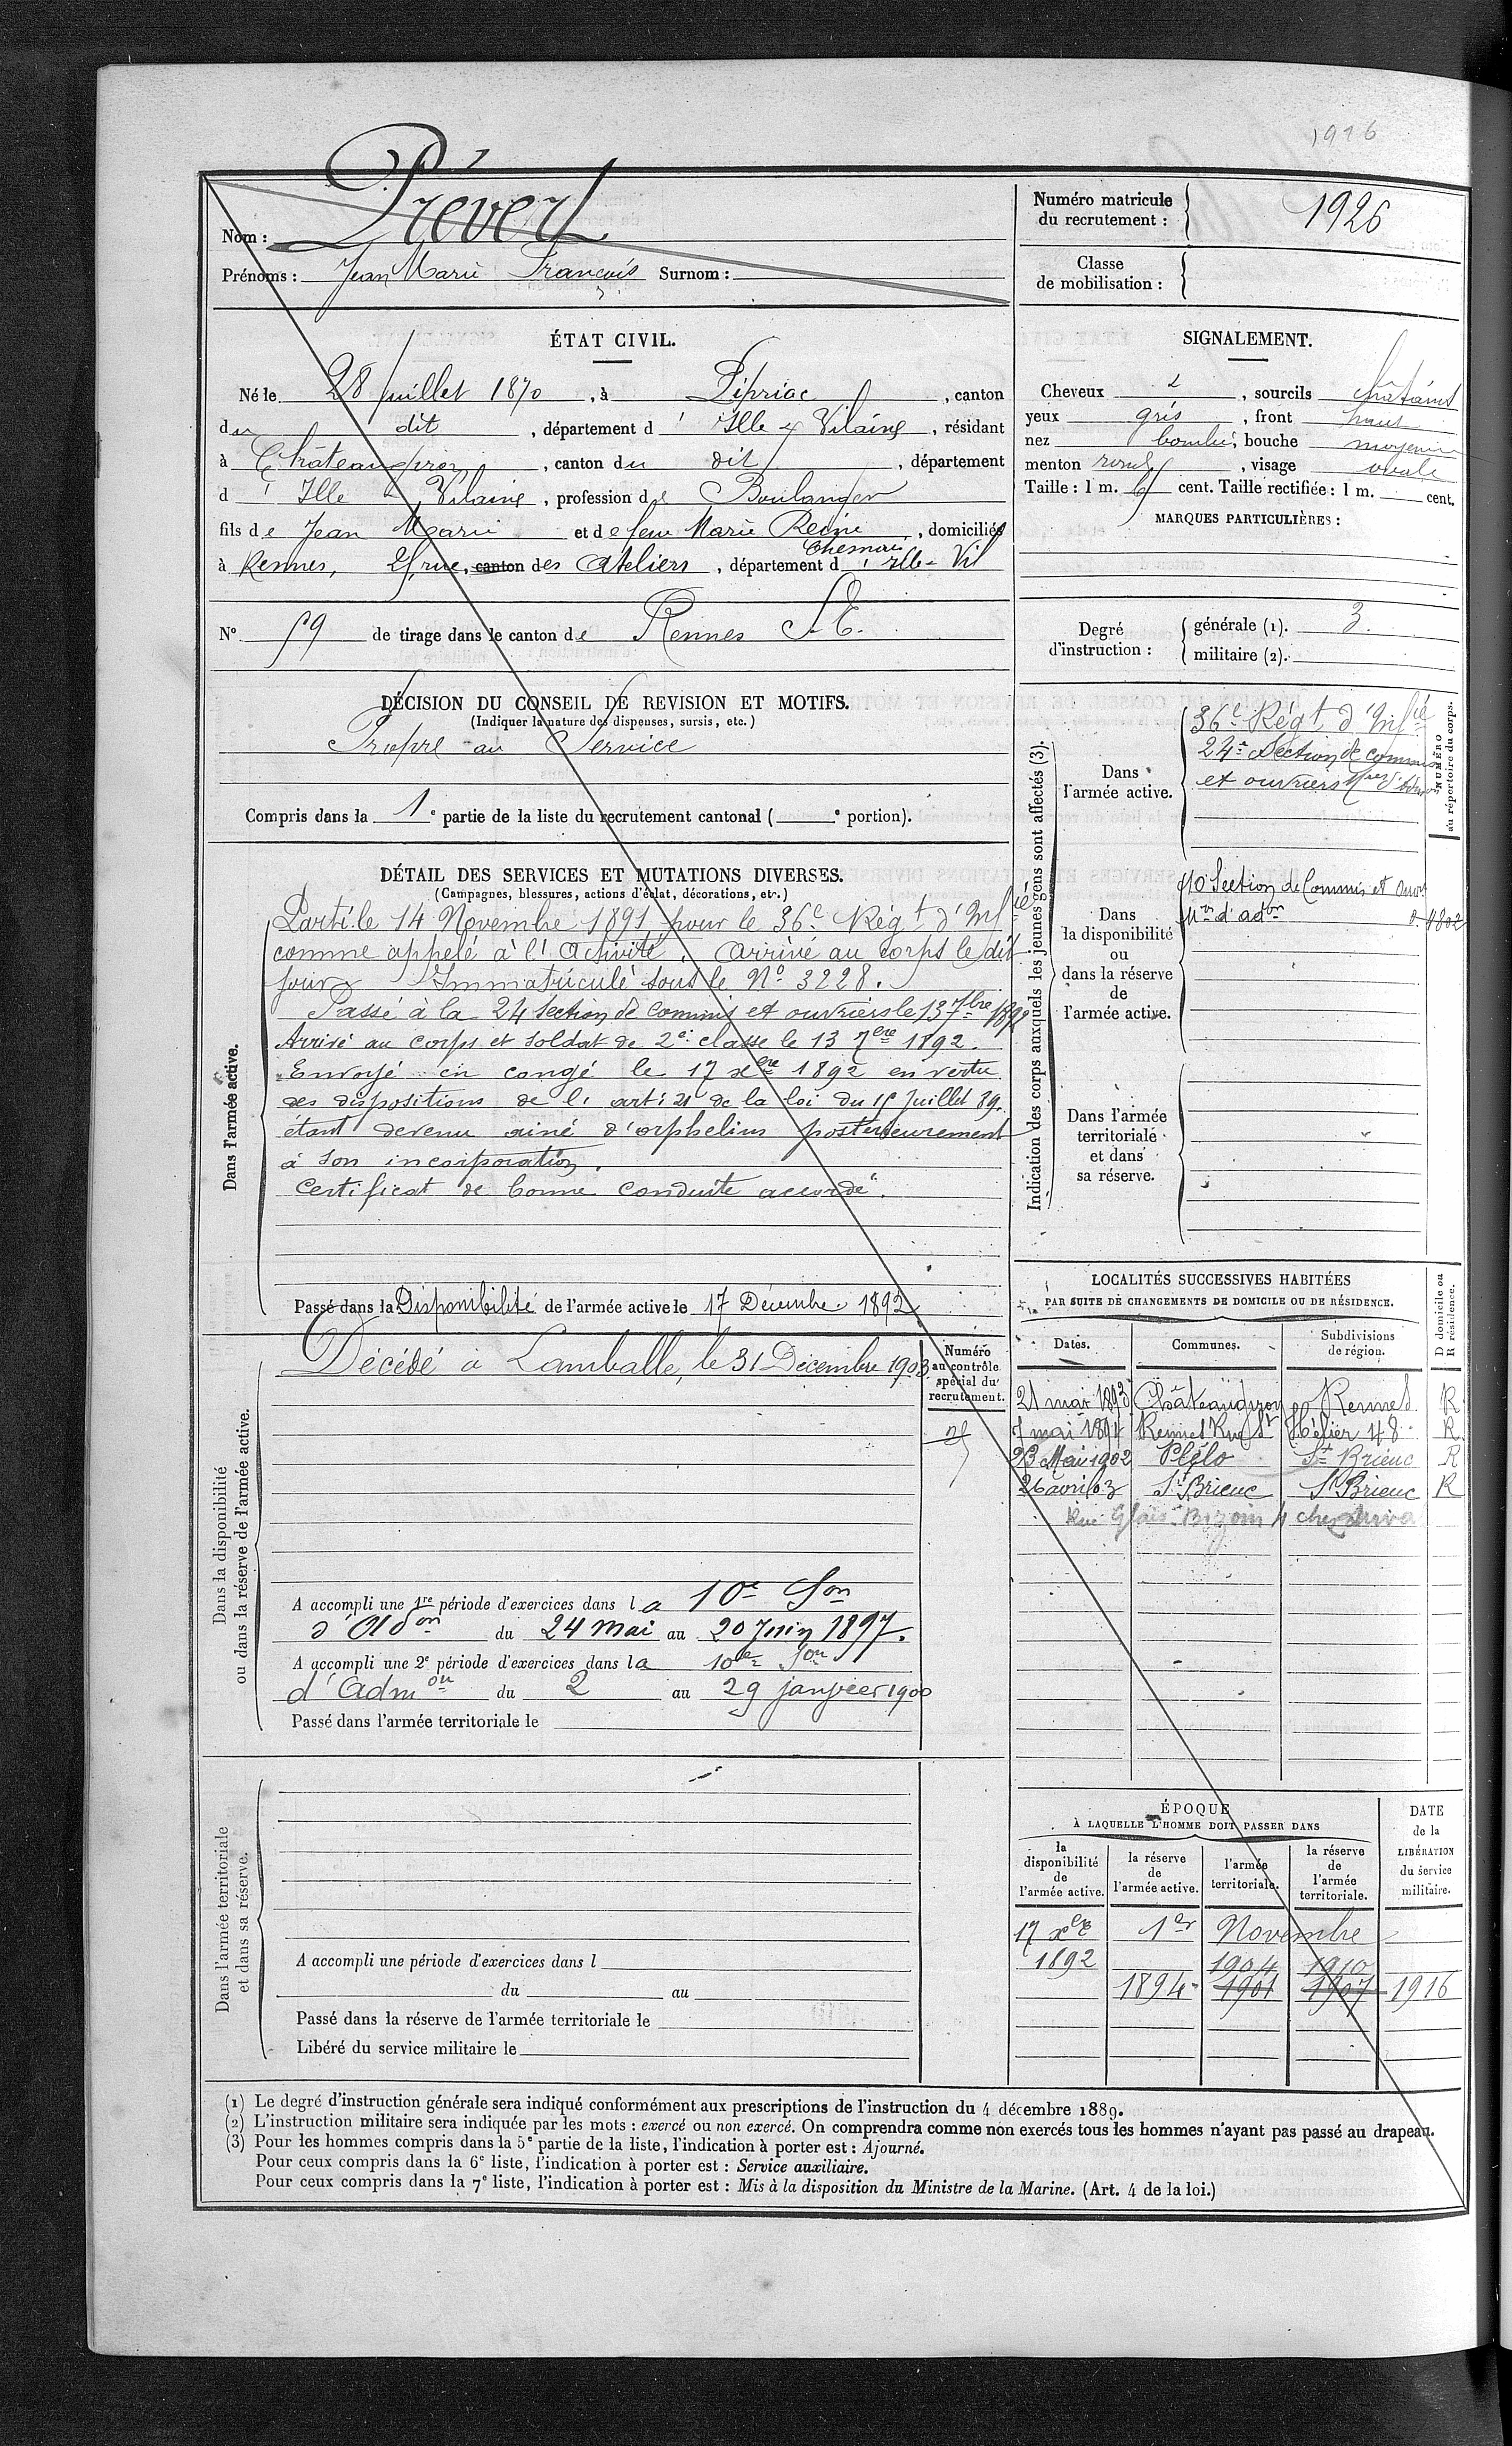 1926
Nom : Prévert
Prénoms : Jean Marie François Surnom :
Numéro matricule du recrutement : 1926
Classe de mobilisation :
ÉTAT CIVIL.
Né le 28 juillet 1870, à Pipriac, canton
du dit, département d' Ille & Vilaine, résidant
à Châteaugiron, canton du dit, département
d' Ille & Vilaine, profession de Boulanger
fils de Jean Marie et de feue Marie Reine, domiciliés
à Rennes, rue, canton des Ateliers, département d' Ille-Vil
SIGNALEMENT.
Cheveux, sourcils châtains
yeux gris, front haut
nez, bouche moyenne
menton rond, visage ovale
Taille : 1 m. cent. Taille rectifiée : 1 m. cent.
MARQUES PARTICULIÈRES :
N° 59 de tirage dans le canton de Rennes S.E.
Degré d'instruction : générale (1). 3.
militaire (2).
DÉCISION DU CONSEIL DE REVISION ET MOTIFS.
(Indiquer la nature des dispenses, sursis, etc.)
Propre au Service
Compris dans la 1e partie de la liste du recrutement cantonal ( e portion).
DÉTAIL DES SERVICES ET MUTATIONS DIVERSES.
(Campagnes, blessures, actions d'éclat, décorations, etc.)
Dans l'armée active.
Parti le 14 Novembre 1891, pour le 36e Régt d'Infie
comme appelé à l'activité. Arrivé au corps le dit
jour & Immatriculé sous le N° 3228.
Passé à la 24 Section de commis et ouvriers le 13 7bre 1892
Arrivé au corps et soldat de 2e classe le 13 7bre 1892.
Envoyé en congé le 17 xbre 1892 en vertu
des dispositions de l'art: 21 de la loi du 15 juillet 89.
étant devenu ainé d'orphelins postérieurement
à son incorporation.
Certificat de bonne conduite accordé.
Passé dans la Disponibilité de l'armée active le 17 Décembre 1892
Indication des corps auxquels les jeunes gens sont affectés (3).
NUMÉRO au répertoire du corps.
Dans l'armée active.
36e Régt d'Infie
24e Section de commis
et ouvriers
Dans la disponibilité ou dans la réserve de l'armée active.
10 Section de Commis et Ouvr
Mres d'adon 4802
Dans l'armée territoriale et dans sa réserve.
Dans la disponibilité ou dans la réserve de l'armée active.
Décédé à Lamballe, le 31 Décembre 1903
Numéro au contrôle spécial du recrutement.
A accompli une 1re période d'exercices dans la 10e Son
d'Adon du 24 Mai au 20 Juin 1897.
A accompli une 2e période d'exercices dans la 10e Son
d'Admon du 2 au 29 janvier 1900
Passé dans l'armée territoriale le
LOCALITÉS SUCCESSIVES HABITÉES
PAR SUITE DE CHANGEMENTS DE DOMICILE OU DE RÉSIDENCE.
D domicile ou R résidence.
Dates. Communes. Subdivisions de région.
21 mar 1893 Châteaugiron Rennes R
7 mai 1894 Rennes Rue St Hélier 48 R
23 Mai 1902 Plélo St Brieuc R
26 avril 03 St Brieuc St Brieuc R
Rue Glais-Bizoin 4
Dans l'armée territoriale et dans sa réserve.
A accompli une période d'exercices dans l
du au
Passé dans la réserve de l'armée territoriale le
Libéré du service militaire le
ÉPOQUE
À LAQUELLE L'HOMME DOIT PASSER DANS
la disponibilité de l'armée active. la réserve de l'armée active. l'armée territoriale. la réserve de l'armée territoriale.
DATE de la LIBÉRATION du service militaire.
17 xbre 1er Novembre
1892 1904 1910
1894 1901 1907 1916
(1) Le degré d'instruction générale sera indiqué conformément aux prescriptions de l'instruction du 4 décembre 1889.
(2) L'instruction militaire sera indiquée par les mots : exercé ou non exercé. On comprendra comme non exercés tous les hommes n'ayant pas passé au drapeau.
(3) Pour les hommes compris dans la 5e partie de la liste, l'indication à porter est : Ajourné.
Pour ceux compris dans la 6e liste, l'indication à porter est : Service auxiliaire.
Pour ceux compris dans la 7e liste, l'indication à porter est : Mis à la disposition du Ministre de la Marine. (Art. 4 de la loi.)